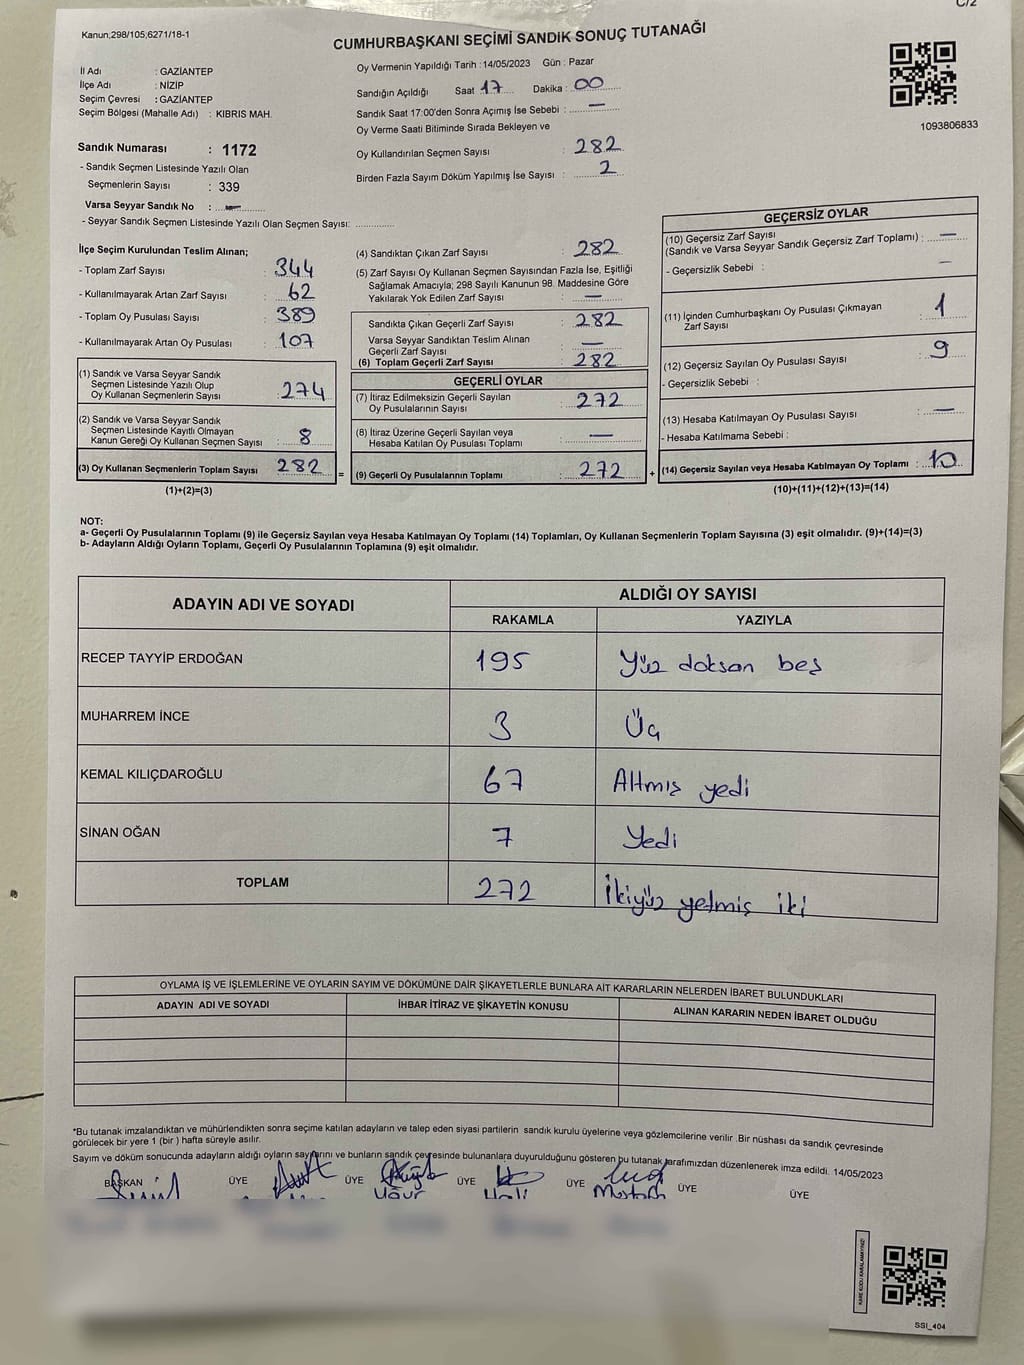 C/2
Kanun;298/105;6271/18-1
CUMHURBAŞKANI SEÇİMİ SANDIK SONUÇ TUTANAĞI
İl Adı : GAZİANTEP
İlçe Adı : NİZİP
Seçim Çevresi : GAZİANTEP
Seçim Bölgesi (Mahalle Adı) : KIBRIS MAH.
Oy Vermenin Yapıldığı Tarih :14/05/2023 Gün : Pazar
Sandığın Açıldığı Saat 17 Dakika : 00
Sandık Saat 17:00'den Sonra Açımış İse Sebebi : —
Oy Verme Saati Bitiminde Sırada Bekleyen ve
Oy Kullandırılan Seçmen Sayısı : 282
Birden Fazla Sayım Döküm Yapılmış İse Sayısı : 2
1093806833
Sandık Numarası : 1172
- Sandık Seçmen Listesinde Yazılı Olan
Seçmenlerin Sayısı : 339
Varsa Seyyar Sandık No : —
- Seyyar Sandık Seçmen Listesinde Yazılı Olan Seçmen Sayısı: ..............
İlçe Seçim Kurulundan Teslim Alınan;
- Toplam Zarf Sayısı : 344
- Kullanılmayarak Artan Zarf Sayısı : 62
- Toplam Oy Pusulası Sayısı : 389
- Kullanılmayarak Artan Oy Pusulası : 107
(1) Sandık ve Varsa Seyyar Sandık
Seçmen Listesinde Yazılı Olup
Oy Kullanan Seçmenlerin Sayısı : 274
(2) Sandık ve Varsa Seyyar Sandık
Seçmen Listesinde Kayıtlı Olmayan
Kanun Gereği Oy Kullanan Seçmen Sayısı : 8
(3) Oy Kullanan Seçmenlerin Toplam Sayısı : 282
(1)+(2)=(3)
(4) Sandıktan Çıkan Zarf Sayısı : 282
(5) Zarf Sayısı Oy Kullanan Seçmen Sayısından Fazla İse, Eşitliği
Sağlamak Amacıyla; 298 Sayılı Kanunun 98. Maddesine Göre
Yakılarak Yok Edilen Zarf Sayısı : —
Sandıkta Çıkan Geçerli Zarf Sayısı : 282
Varsa Seyyar Sandıktan Teslim Alınan
Geçerli Zarf Sayısı : —
(6) Toplam Geçerli Zarf Sayısı : 282
GEÇERLİ OYLAR
(7) İtiraz Edilmeksizin Geçerli Sayılan
Oy Pusulalarının Sayısı : 272
(8) İtiraz Üzerine Geçerli Sayılan veya
Hesaba Katılan Oy Pusulası Toplamı : —
= (9) Geçerli Oy Pusulalarının Toplamı : 272 +
GEÇERSİZ OYLAR
(10) Geçersiz Zarf Sayısı
(Sandık ve Varsa Seyyar Sandık Geçersiz Zarf Toplamı) : —
- Geçersizlik Sebebi : —
(11) İçinden Cumhurbaşkanı Oy Pusulası Çıkmayan
Zarf Sayısı : 1
(12) Geçersiz Sayılan Oy Pusulası Sayısı : 9
- Geçersizlik Sebebi :
(13) Hesaba Katılmayan Oy Pusulası Sayısı : —
- Hesaba Katılmama Sebebi :
(14) Geçersiz Sayılan veya Hesaba Katılmayan Oy Toplamı : 10
(10)+(11)+(12)+(13)=(14)
NOT:
a- Geçerli Oy Pusulalarının Toplamı (9) ile Geçersiz Sayılan veya Hesaba Katılmayan Oy Toplamı (14) Toplamları, Oy Kullanan Seçmenlerin Toplam Sayısına (3) eşit olmalıdır. (9)+(14)=(3)
b- Adayların Aldığı Oyların Toplamı, Geçerli Oy Pusulalarının Toplamına (9) eşit olmalıdır.
ADAYIN ADI VE SOYADI
ALDIĞI OY SAYISI
RAKAMLA YAZIYLA
RECEP TAYYİP ERDOĞAN 195 Yüz doksan beş
MUHARREM İNCE 3 Üç
KEMAL KILIÇDAROĞLU 67 Altmış yedi
SİNAN OĞAN 7 Yedi
TOPLAM 272 İkiyüz yetmiş iki
OYLAMA İŞ VE İŞLEMLERİNE VE OYLARIN SAYIM VE DÖKÜMÜNE DAİR ŞİKAYETLERLE BUNLARA AİT KARARLARIN NELERDEN İBARET BULUNDUKLARI
ADAYIN ADI VE SOYADI İHBAR İTİRAZ VE ŞİKAYETİN KONUSU ALINAN KARARIN NEDEN İBARET OLDUĞU
*Bu tutanak imzalandıktan ve mühürlendikten sonra seçime katılan adayların ve talep eden siyasi partilerin sandık kurulu üyelerine veya gözlemcilerine verilir .Bir nüshası da sandık çevresinde
görülecek bir yere 1 (bir ) hafta süreyle asılır.
Sayım ve döküm sonucunda adayların aldığı oyların sayılarını ve bunların sandık çevresinde bulunanlara duyurulduğunu gösteren bu tutanak tarafımızdan düzenlenerek imza edildi. 14/05/2023
BAŞKAN ÜYE ÜYE ÜYE ÜYE ÜYE ÜYE
Uğur
KARE KODU KARALAMAYINIZ!
SSI_404